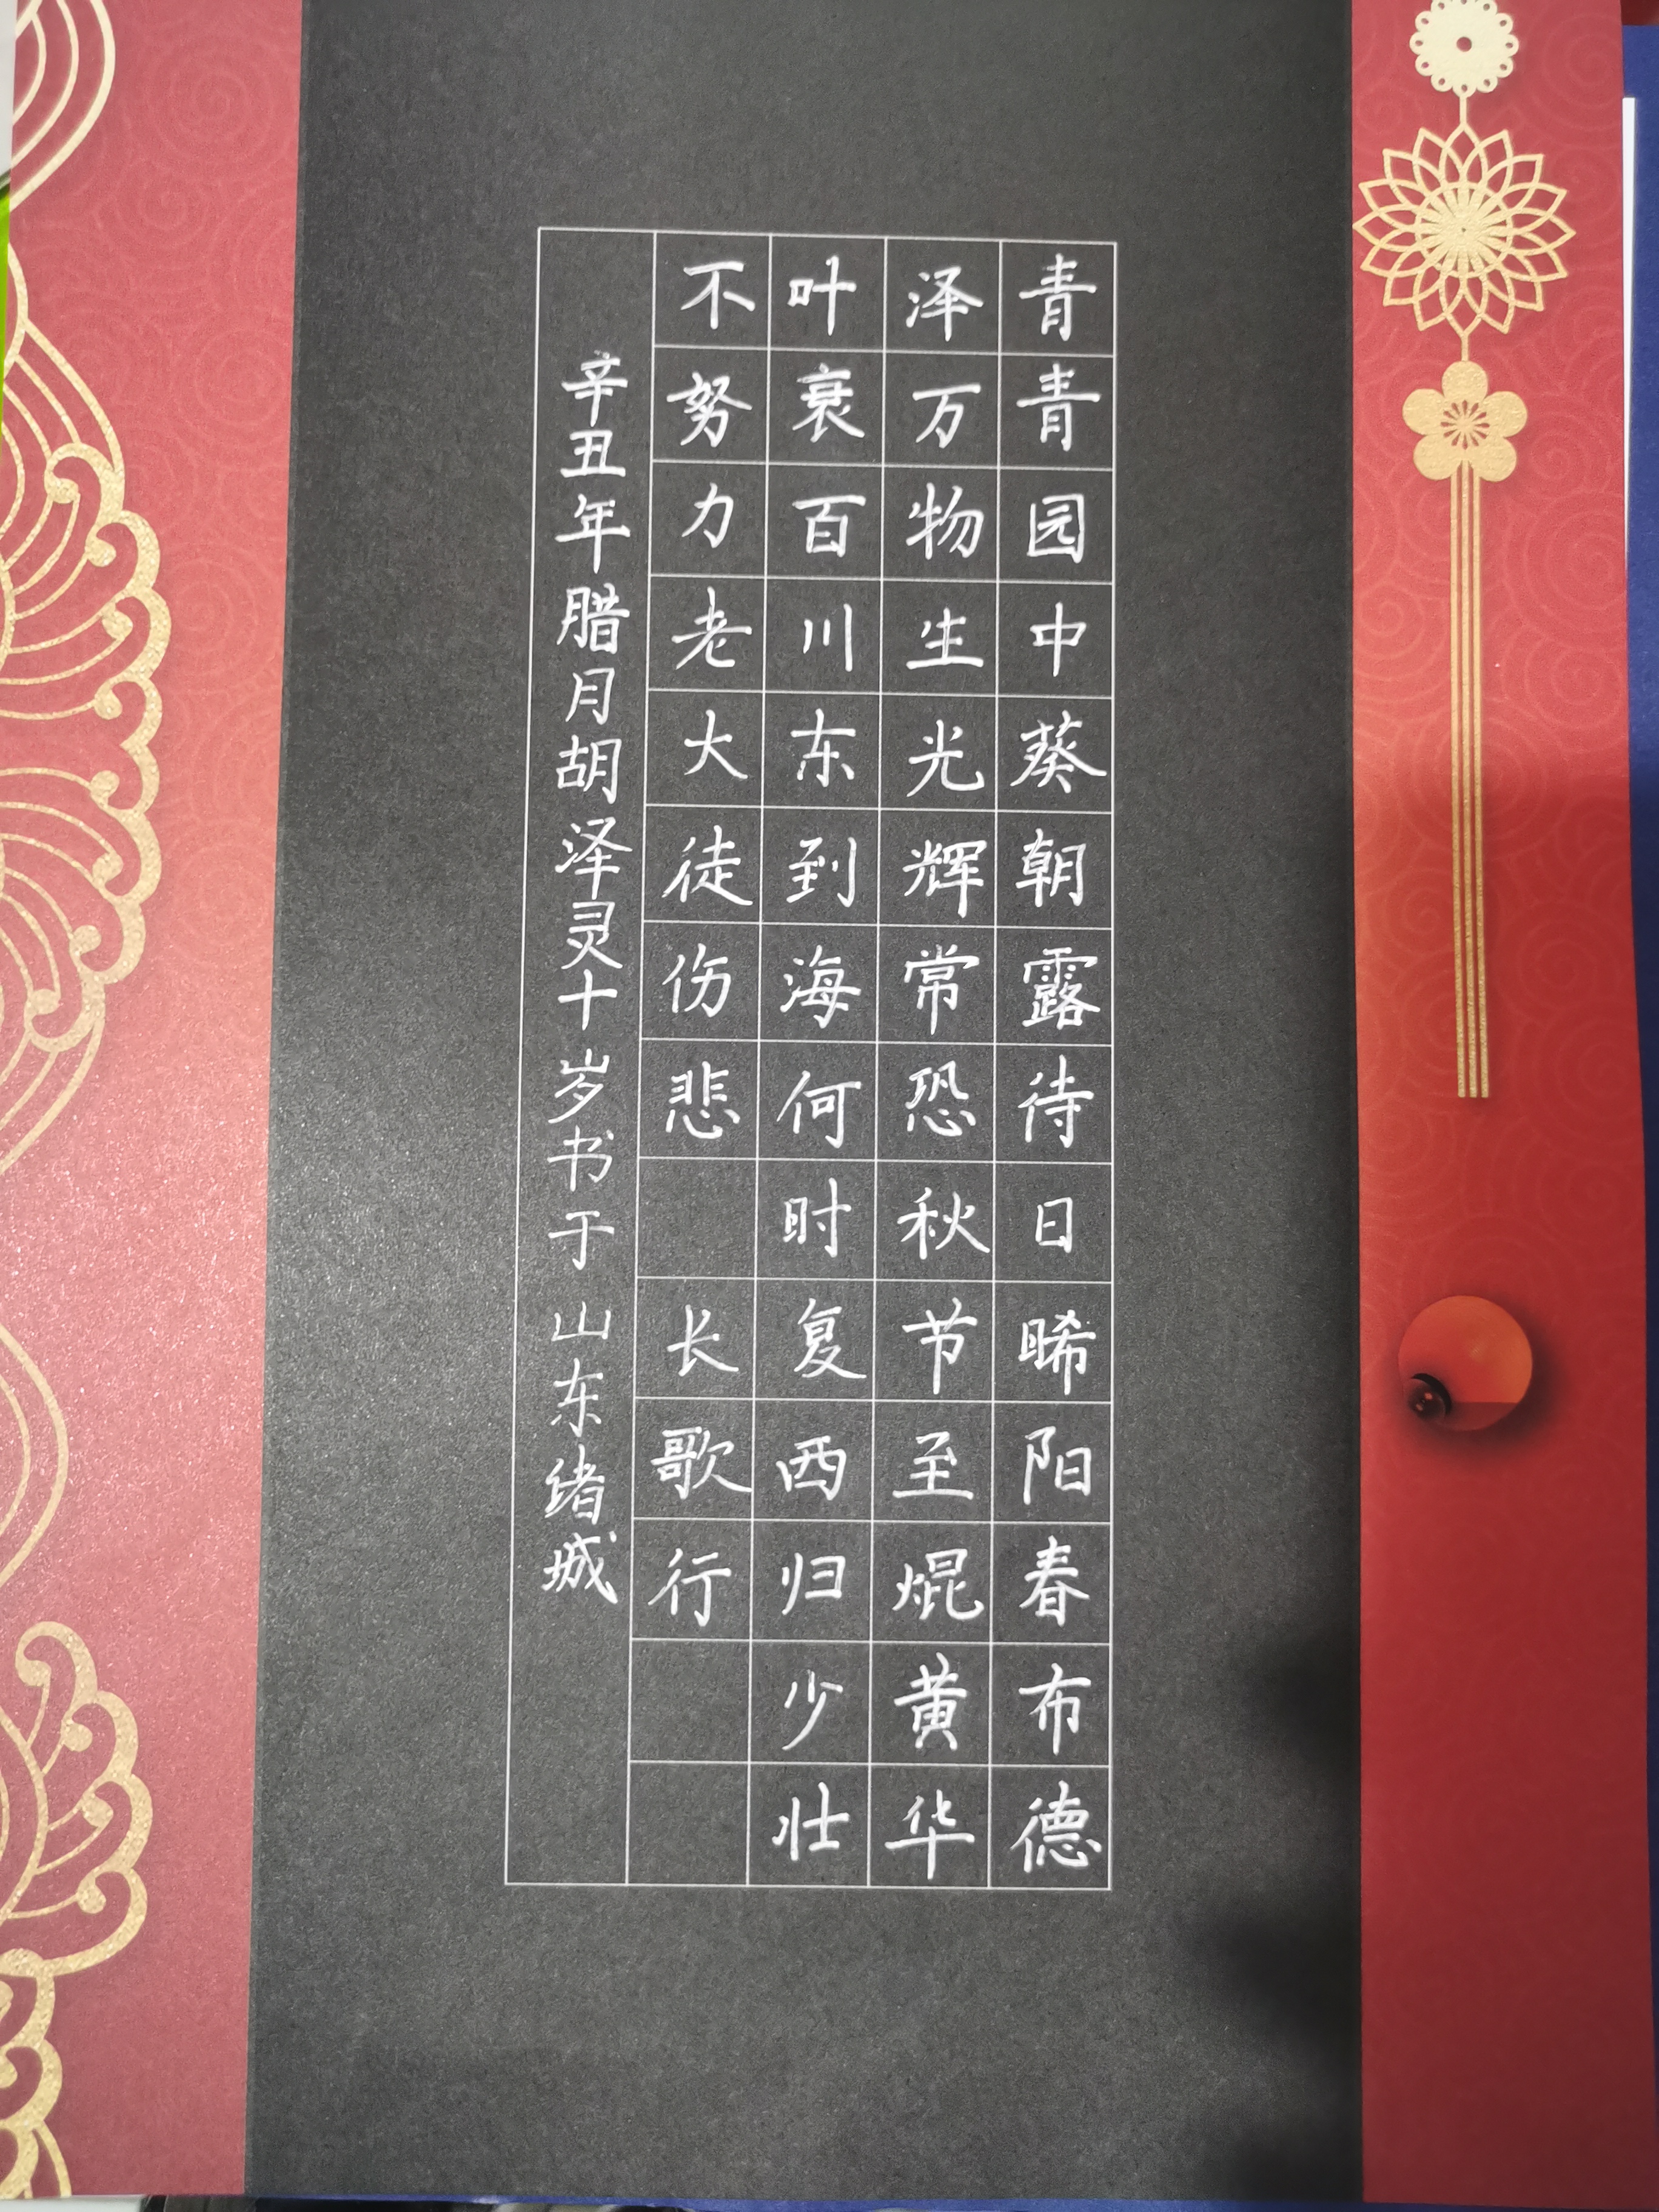 青青园中葵朝露待日晞阳春布德
泽万物生光辉常恐秋节至焜黄华
叶衰百川东到海何时复西归少壮
不努力老大徒伤悲 长歌行
辛丑年腊月胡泽灵十岁书于山东绪城